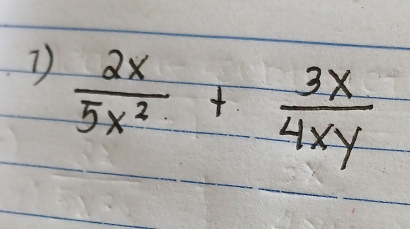 7) 2x/5x² + 3x/4xy